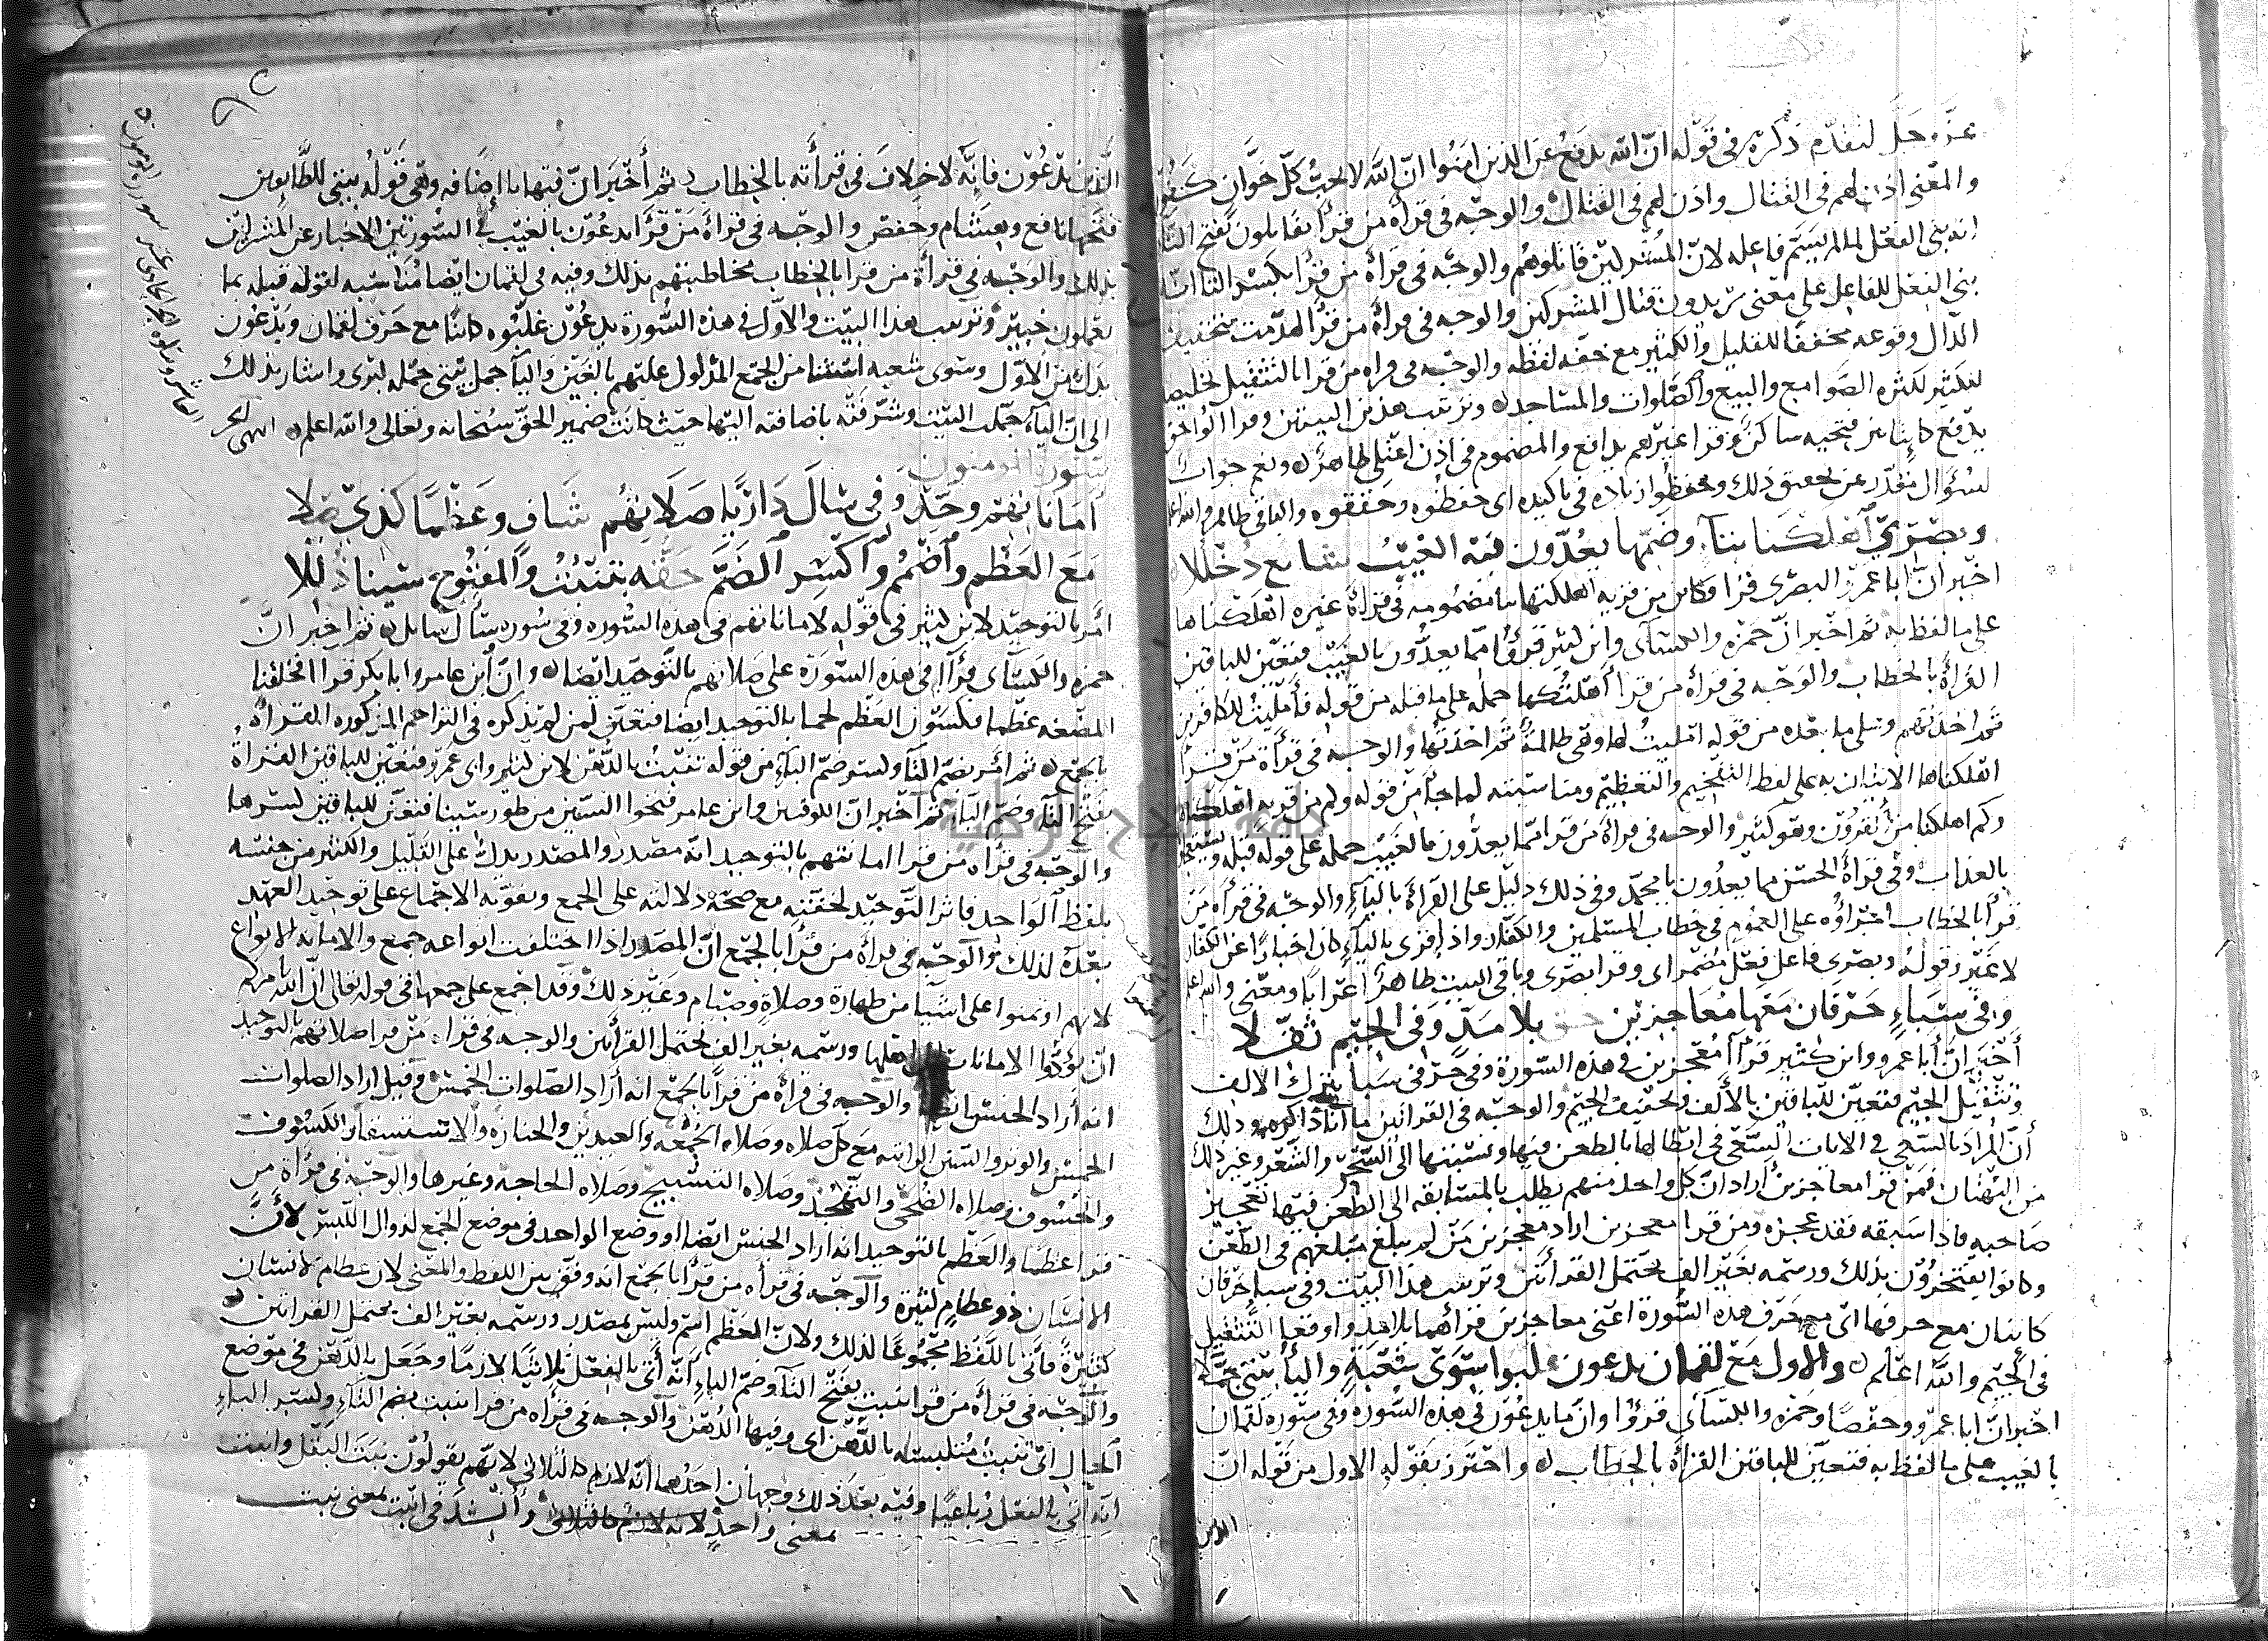 عز وجل لتقدم ذكره في قوله ان الله يدفع عن الذين امنوا ان الله لا يحب كل خوان كفور
والمعنى اذن لهم في القتال واذن لهم في القتال والوجه في قراة من قرا يقاتلون بفتح التا
انه بني الفعل لما لم يسم فاعله لان المشركين قاتلوهم والوجه في قراة من قرا بكسر التا انه
بني الفعل للفاعل على معنى يريدون قتال المشركين والوجه في قراة من قرا لهدمت بتخفيف
الدال وقوعه مخففا للقليل والكثير مع خفة لفظه والوجه في قراة من قرا بالتثقيل تخليصه
للتكثير لكثره الصوامع والبيع والصلوات والمساجد وترتيب هذين البيتين وقرا الواحق
يدفع كاينا بين فتحيه ساكن وقرا غيرهم يدافع والمضموم في اذن اعتلى ظاهر ونعم جواب
لسؤال مقدر عن تحقيق ذلك وحفظوا زياده في تاكيده اي حفظوه وحققوه والباقي ظاهر والله اعلم
وبصري اهلكنا بتآء وضمها يعدون فيه الغيب شايع دخللا
اخبر ان ابا عمرو البصري قرا فكاين من قريه اهلكتها بتا مضمومه في قراة غيره اهلكناها
على ما لفظ به ثم اخبر ان حمزه والكسآى وابن كثير قرؤا مما يعدون بالغيب فتعين للباقين
القراة بالخطاب والوجه في قراة من قرا اهلكتها حمله على ما قبله من قوله فامليت للكافرين
ثم اخذتهم وعلى ما بعده من قوله امليت لها وهي ظالمة ثم اخذتها والوجه في قراة من قرا
اهلكناها الاتيان به على لفظ التفخيم والتعظيم ومناسبته لما جآ من قوله وكم من قريه اهلكناها
وكم اهلكنا من القرون وهو كثير والوجه في قراة من قرا مما يعدون بالغيب حمله على قوله قبله ويستعجلونك
بالعذاب وفي قراة الحسن مما يعدون يا محمد وفي ذلك دليل على القراة باليآء والوجه في قراة من
قرا بالخطاب اجراؤه على العموم في خطاب المسلمين والكفار واذا قرى باليآء كان اخبارا عن الكفار
لا غير وقوله وبصري فاعل فعل مضمر اي وقرا بصري وباقي البيت ظاهر اعرابا ومعنى والله اعلم
وفي سباء حرفان معها معاجزين حق بلا مد وفي الجيم ثقلا
اخبر ان أبا عمرو وابن كثير قرآ معجزين في هذه السورة وفي حرفي سبا بترك الالف
وتثقيل الجيم فتعين للباقين بالألف وتخفيف الجيم والوجه في القراتين ما انا ذاكره وذلك
أن المراد بالسعي في الايات السعي في ابطالها بالطعن فيها ونسبتها الى السحر والشعر وغير ذلك
من البهتان فمن قرا معاجزين أراد ان كل واحد منهم يطلب بالمسابقه الى الطعن فيها تعجيز
صاحبه فاذا سبقه فقد عجزه ومن قرا معجزين اراد معجزين من لم يبلغ مبلغهم في الطعن
وكانوا يفتخرون بذلك ورسمه بغير الف يحتمل القرأتين وترتيب هذا البيت وفي سبا حرفان
كاينان مع حرفها اي مع حرف هذه السورة اعني معاجزين قراهما بلا مد واوقعا التثقيل
في الجيم والله اعلم والاول مع لقمان يدعون غلبوا سوى شعبة واليا بيتي جملا
اخبر ان ابا عمرو وحفصا وحمزه والكسآى قرؤا وان ما يدعون في هذه السورة وفي سوره لقمان
بالغيب على ما لفظ به فتعين للباقين القراة بالخطاب واحترز بقوله الاول من قوله ان
الذين
الذين يدعون فانه لا خلاف في قرأته بالخطاب ثم أخبر ان فيها يا اضافه وهي قوله بيتي للطايفين
فتحها نافع وهشام وحفص والوجه في قراة من قرا يدعون بالغيب في السورتين الاخبار عن المشركين
بذلك والوجه في قراة من قرا بالخطاب مخاطبتهم بذلك وفيه في لقمان ايضا مناسبه لقوله قبله بما
تعملون خبير وترتيب هذا البيت والاول في هذه السورة يدعون غلبوه كاينا مع حرف لقمان ويدعون
بدل من الاول وسوى شعبه استثنا من الجمع المدلول عليهم بالغين واليآ جمل بيتي جمله كبرى واشار بذلك
الى ان اليآء جملت البيت وشرفته باضافته اليها حيث كانت ضمير الحق سبحانه وتعالى والله اعلم انتهى
سورة المومنون
أماناتهم وحد وفي سال داريا صلاتهم شاف وعظما كذي صلا
مع العظم واضمم واكسر الضم حقه بتنبت والمفتوح سيناء ذللا
أمر بالتوحيد لابن كثير في قوله لاماناتهم في هذه السوره وفي سوره سأل سايل ثم اخبر ان
حمزه والكسآى قرآ في هذه السورة على صلاتهم بالتوحيد ايضا وان ابن عامر وابا بكر قرا فخلقنا
المضغه عظما فكسونا العظم لحما بالتوحيد ايضا فتعين لمن لم يذكره في التراجم المذكوره القراة
بالجمع ثم امر بضم التآ وكسر ضم البآء من قوله تنبت بالدهن لابن كثير وابي عمرو فتعين للباقين القراة
بفتح التآء وضم البآء ثم اخبر ان الكوفيين وابن عامر فتحوا السين من طور سينا فتعين للباقين كسرها
والوجه في قراة من قرا امانتهم بالتوحيد انه مصدر والمصدر يدل على القليل والكثير من جنسه
بلفظ الواحد فاثر التوحيد لخفته مع صحة دلالته على الجمع ويقويه الاجماع على توحيد العهد
بعده لذلك والوجه في قراة من قرا بالجمع ان المصدر اذا اختلفت انواعه جمع والامانه الانواع
لانهم اوتمنوا على اشيآ من طهارة وصلاة وصيام وغير ذلك وقد اجمع على جمعها في قوله تعالى ان الله يامركم
ان تؤدوا الامانات اهلها ورسمه بغير الف يحتمل القرأتين والوجه في قراة من قرا صلاتهم بالتوحيد
انه أراد الجنس والوجه في قراة من قرأ بالجمع انه أراد الصلوات الخمس وقيل اراد الصلوات
الخمس والوتر والسنن الراتبه مع كل صلاه وصلاه الجمعه والعيدين والجنازه والاستسقا والكسوف
والخسوف وصلاه الضحى والتهجد وصلاه التسبيح وصلاه الحاجه وغيرها والوجه في قراة من
قرا عظما والعظم بالتوحيد انه اراد الجنس ايضا او وضع الواحد في موضع الجمع لزوال اللبس لأن
الانسان ذو عظام كثيرة والوجه في قراه من قرأ بالجمع انه وفق بين اللفظ والمعنى لان عظام الانسان
كثيرة فأتى باللفظ مجموعا لذلك ولان العظم اسم وليس بمصدر ورسمه بغير الف يحتمل القراتين
والوجه في قراة من قرا تنبت بفتح التآ وضم الباء انه أتى بالفعل ثلاثيا لازما وجعل بالدهن في موضع
الحال اي تنبت متلبسه بالدهن اي وفيها الدهن والوجه في قراه من قرا تنبت بضم التآء وكسر الباء
انه اتى بالفعل رباعيا وفيه بعد ذلك وجهان احدهما انه لازم كالثلاثي لانهم يقولون نبت البقل وانبت
بمعنى واحد لانه لازم كالثلاثي وانشد في انبت بمعنى نبت